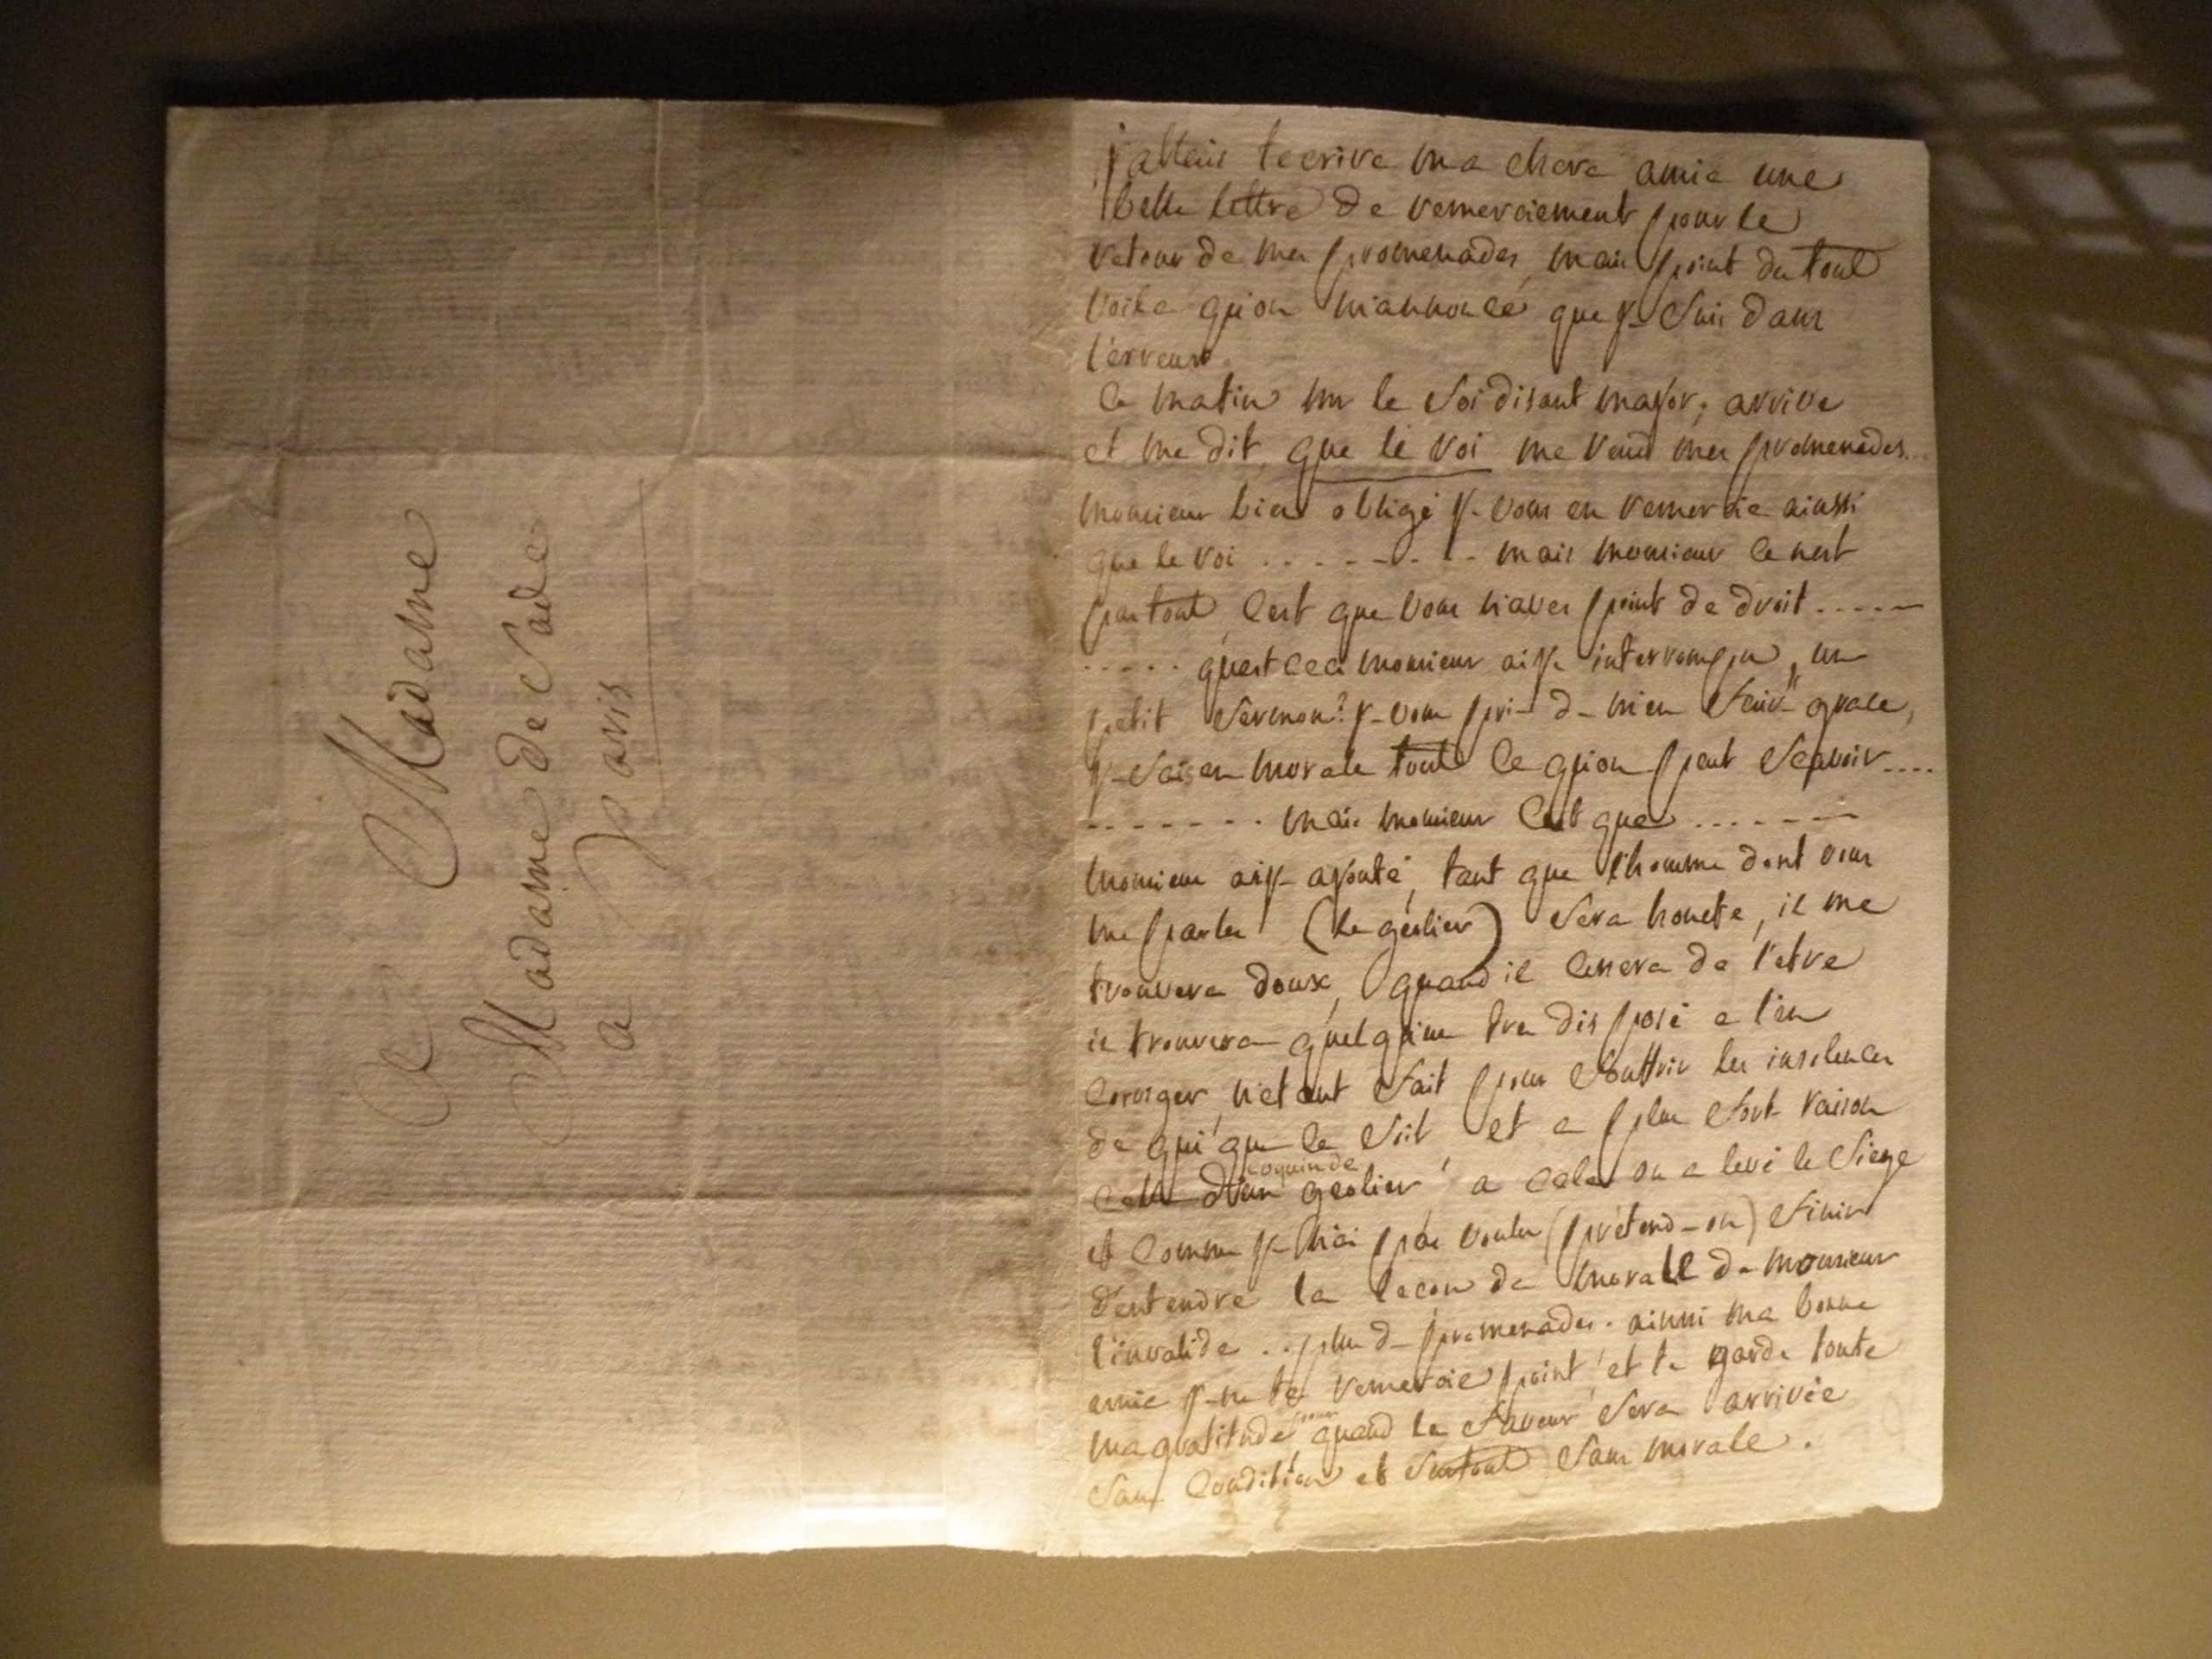 A Madame
Madame de Sade
a paris
j'allais tecrire ma chere amie une
belle lettre de remerciement pour le
retour de mes promenades mais point du tout
voila qu'on m'annonce que je suis dans
l'erreur.
ce matin mr le soi disant major, arrive
et me dit, que le roi me rend mes promenades...
monsieur bien obligé je vous en remercie ainssi
que le roi . . . . . . . . mais monsieur ce nest
pas tout cest que vous n'aves point de droit .....
..... qu'est ceci monsieur ai je interrompu, un
petit sermon? je vous prie de m'en faire grace,
je scais en morale tout ce qu'on peut scavoir....
....... mais monsieur cest que .......
monsieur ai je ajouté, tant que l'homme dont vous
me parles (le geolier) sera honete, il me
trouvera doux, quand il cessera de l'etre
il trouvera quelqu'un tres disposé a l'en
corriger, n'etant fait pour souffrir les insolences
de qui que ce soit et a plus forte raison
celle d'un coquin de geolier, a cela on a levé le siege
et comme je n'ai pas voulu (prétend-on) finir
d'entendre la lecon de morale de monsieur
l'invalide .. plus de promenades. ainssi ma bonne
amie je ne te remercie point, et te garde toute
ma gratitude pour quand la faveur sera arrivée
sans condition et surtout sans morale.